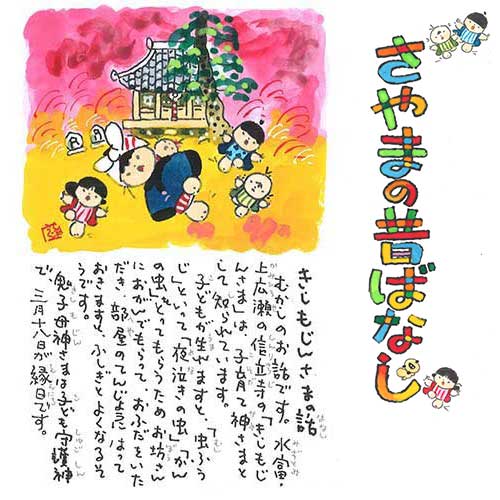 さやまの昔ばなし
きしもじんさまの話
むかしのお話です。水富・
上広瀬の信立寺の「きしもじ
んさま」は、子育て神さまと
して知られています。
子どもが生れますと、「虫ふう
じ」といって「夜泣きの虫」「かん
の虫」をとってもらうためお坊さん
におがんでもらって、おふだをいた
だき、部屋のてんじょうにはって
おきますと、ふしぎとよくなるそ
うです。
鬼子母神さまは子ども守護神
で、三月十八日が縁日です。